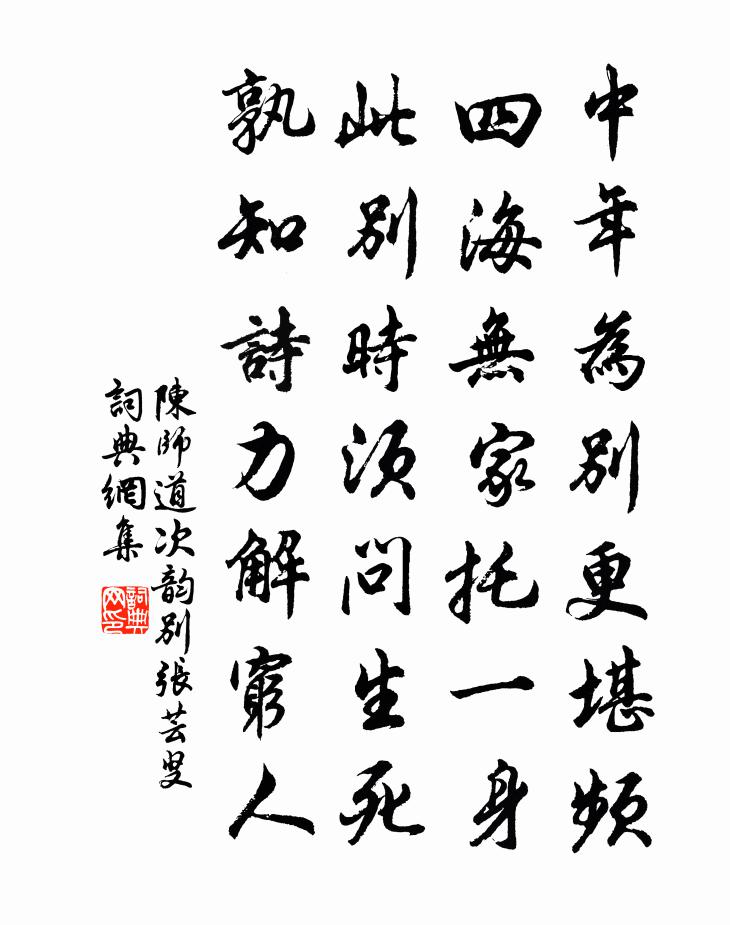 中年為別更堪頻
四海無家托一身
此別時須問生死
孰知詩力解窮人
陳師道次韵別張芸叟
詞典網集
詞典网印